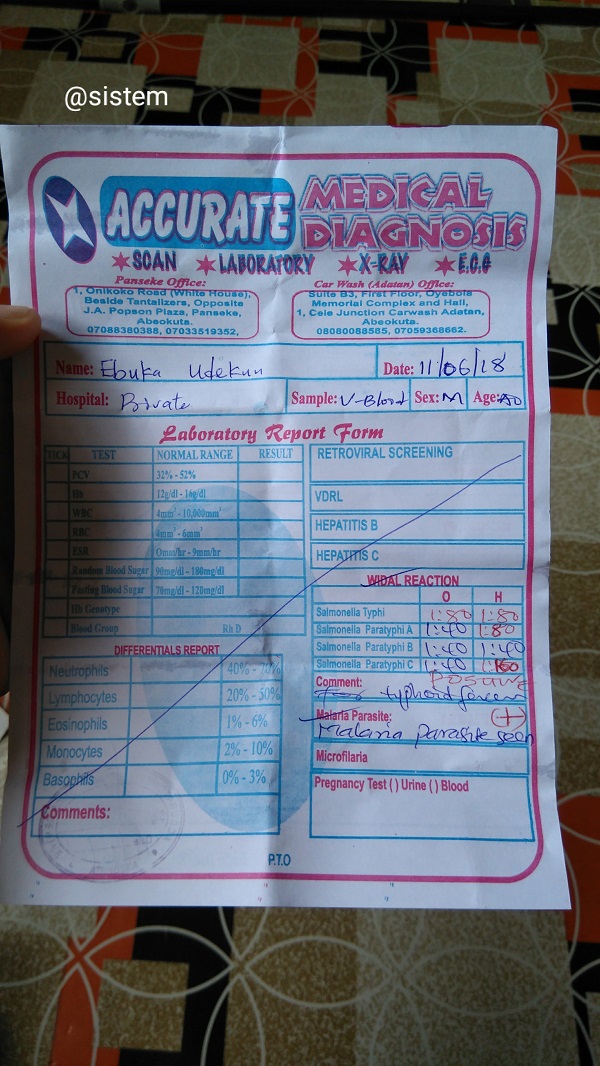 @sistem
ACCURATE MEDICAL DIAGNOSIS
SCAN LABORATORY X-RAY E.C.G
Panseke Office:
1, Onikoko Road (White House),
Beside Tantalizers, Opposite
J.A. Popson Plaza, Panseke,
Abeokuta.
07088380388, 07033519352,
Car Wash (Adatan) Office:
Suite B3, First Floor, Oyebola
Memorial Complex and Hall,
1, Cele Junction Carwash Adatan,
Abeokuta.
08080088585, 07059368662.
Name: Ebuka Udekun Date: 11/06/18
Hospital: Private Sample: V-Blood Sex: M Age:
Laboratory Report Form
TICK TEST NORMAL RANGE RESULT
PCV 32% - 52%
Hb 12g/dl - 16g/dl
WBC 4mm³ - 10,000mm³
RBC
ESR Omm/hr - 9mm/hr
Random Blood Sugar 90mg/dl - 180mg/dl
Fasting Blood Sugar 70mg/dl - 120mg/dl
Hb Genotype
Blood Group Rh D
DIFFERENTIALS REPORT
Neutrophils 40% - 70%
Lymphocytes 20% - 50%
Eosinophils 1% - 6%
Monocytes 2% - 10%
Basophils 0% - 3%
Comments:
RETROVIRAL SCREENING
VDRL
HEPATITIS B
HEPATITIS C
WIDAL REACTION
O H
Salmonella Typhi 1:80 1:80
Salmonella Paratyphi A 1:40 1:80
Salmonella Paratyphi B 1:40 1:40
Salmonella Paratyphi C 1:40 1:160
Comment: Positive
typhoid
Malaria Parasite: (+)
Malaria parasite seen
Microfilaria
Pregnancy Test ( ) Urine ( ) Blood
P.T.O